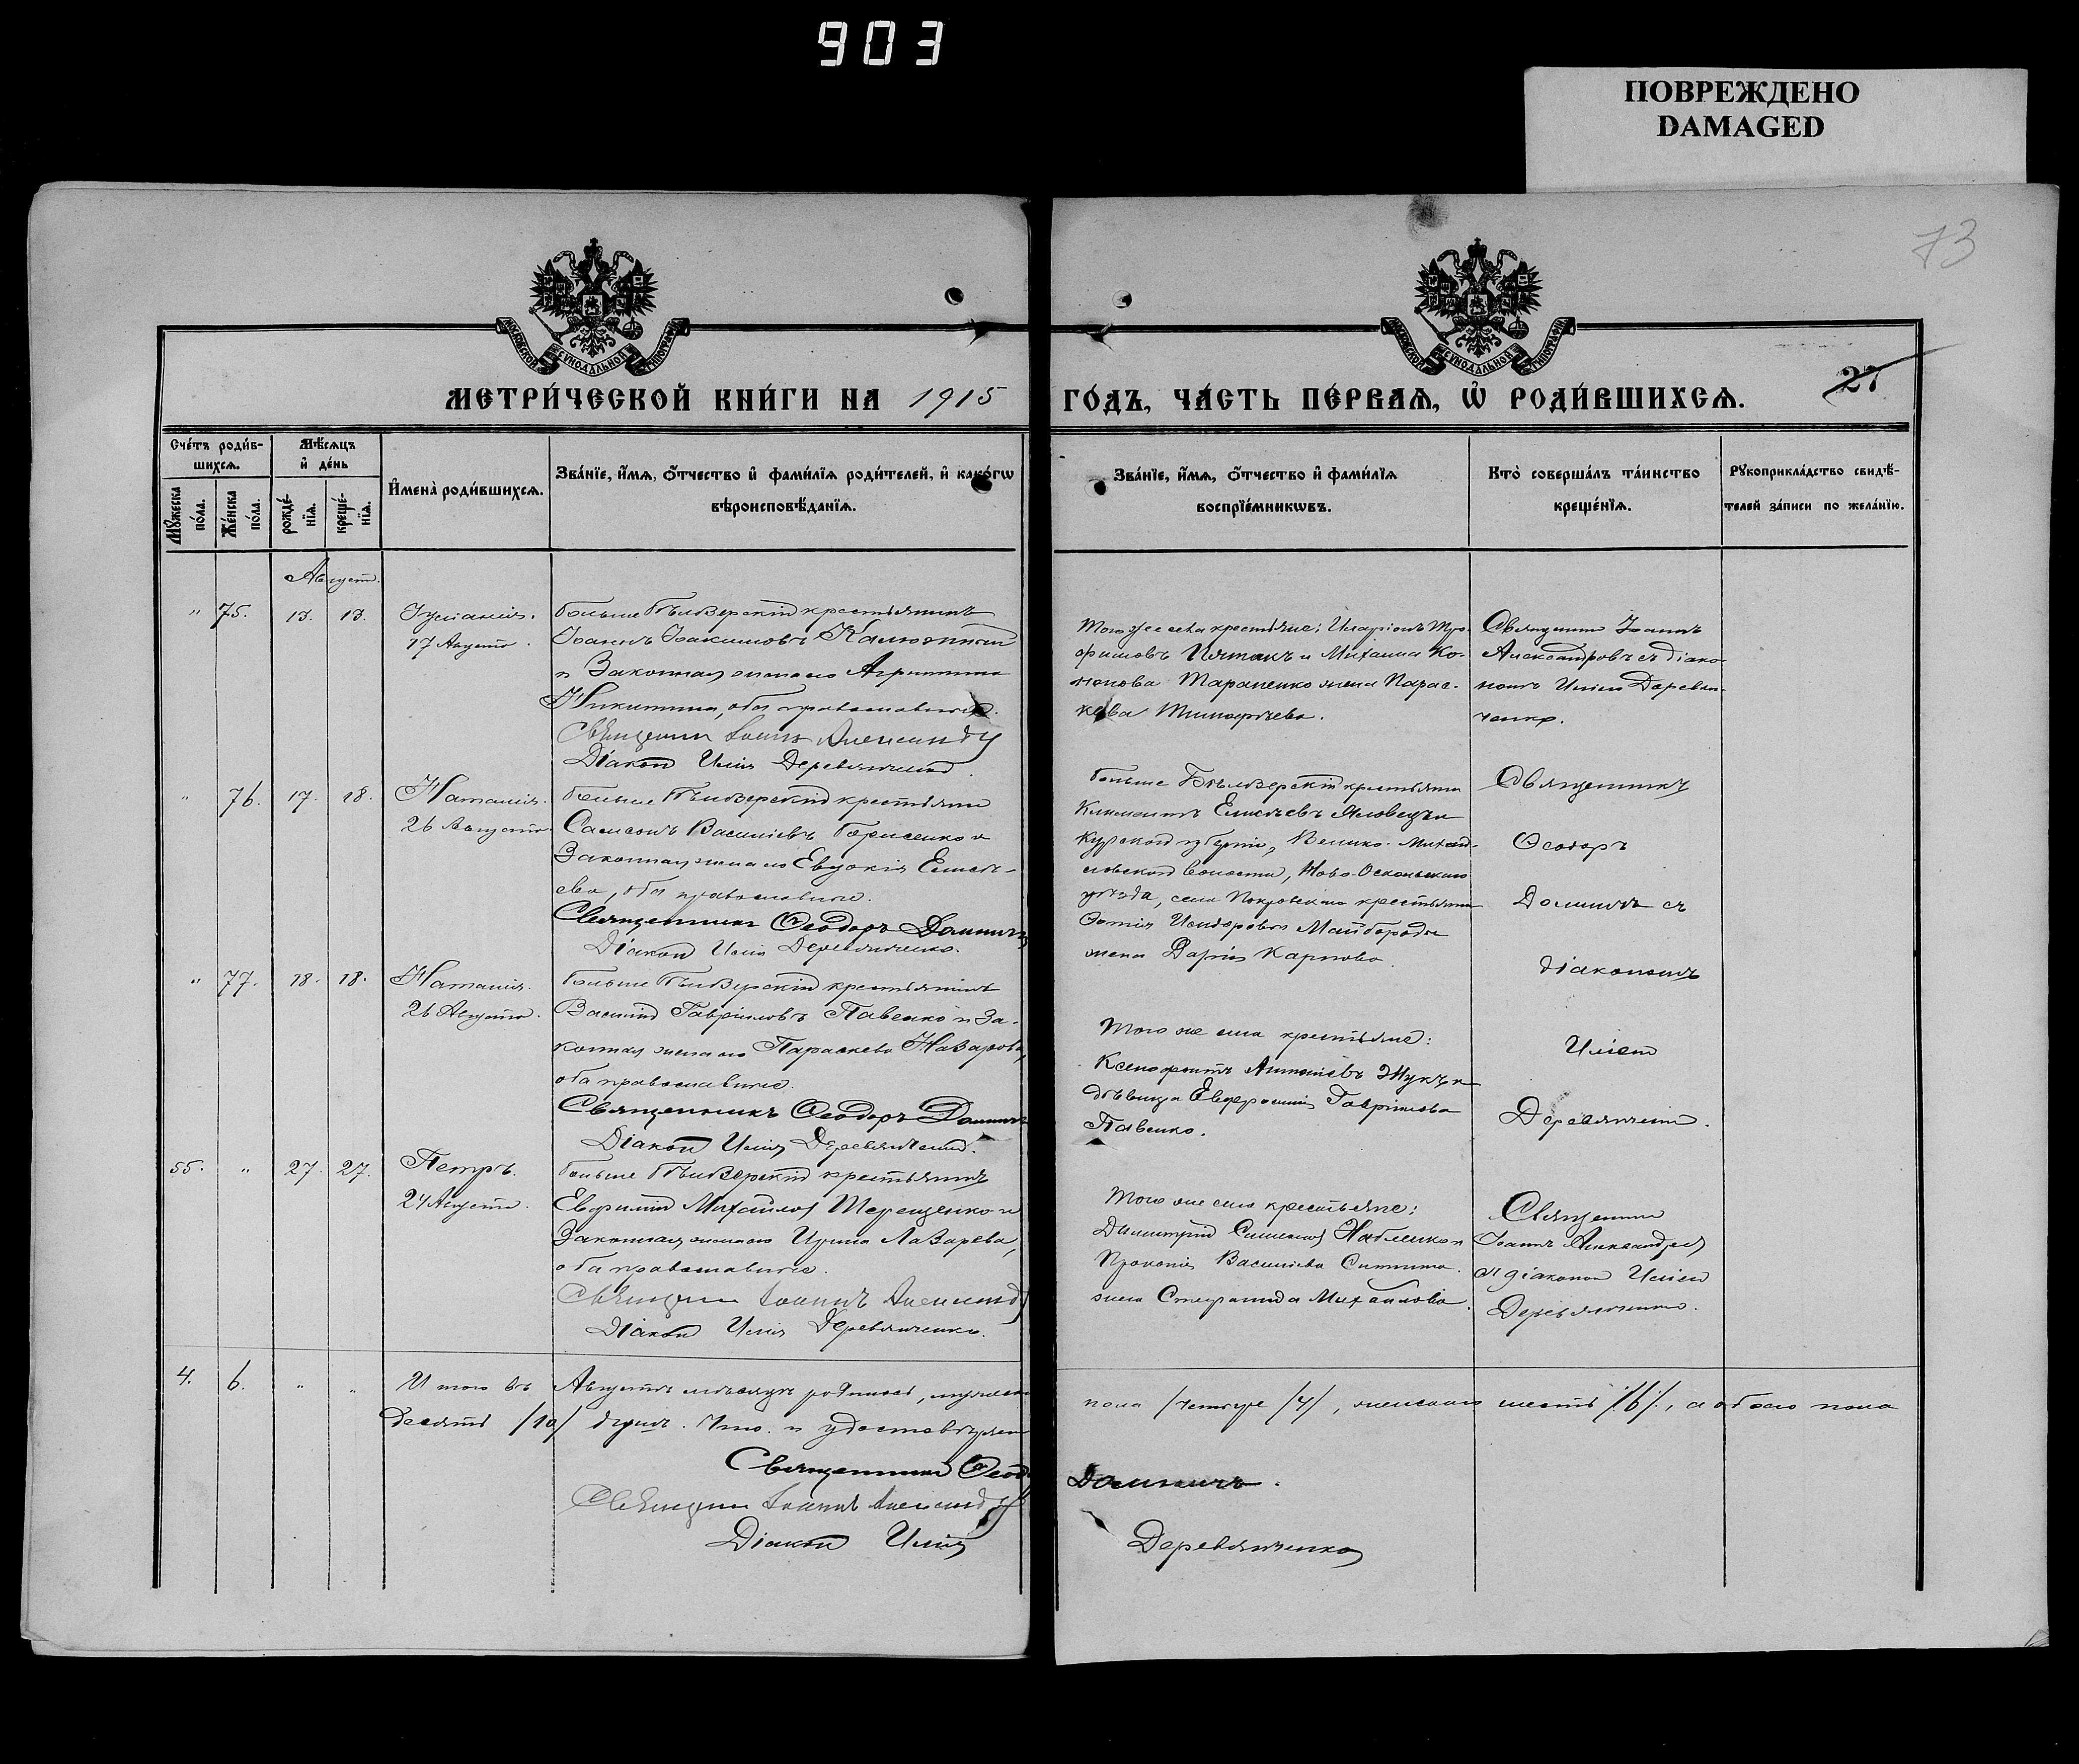 903
ПОВРЕЖДЕНО
DAMAGED
73
МОСКОВСКОЙ СѴНОДАЛЬНОЙ ТИПОГРАФІИ
МОСКОВСКОЙ СѴНОДАЛЬНОЙ ТИПОГРАФІИ
МЕТРИ́ЧЕСКОЙ КНИ́ГИ НА 1915
ГО́ДЪ, ЧА́СТЬ ПЕ́РВАѦ, Ѡ҆ РОДИ́ВШИХСѦ.
27
Сче́тъ роди́в-
шихсѧ.
Мꙋ́жеска
по́ла.
Же́нска
по́ла.
Мѣ́сѧцъ
и҆ де́нь
рожде́-
нїѧ.
креще́-
нїѧ.
И҆мена̀ роди́вшихсѧ.
Зва́нїе, и҆́мѧ, ѻ҆́тчество и҆ фами́лїѧ роди́телей, и҆ како́гѡ
вѣроисповѣ́данїѧ.
Зва́нїе, и҆́мѧ, ѻ҆́тчество и҆ фами́лїѧ
воспрїе́мникѡвъ.
Кто̀ соверша́лъ та́инство
креще́нїѧ.
Рꙋкоприкла́дство свидѣ́-
телей за́писи по жела́нїю.
Августъ.
" 75. 13. 13. Іуліанія.
17 Августа.
Больше Бѣлозерскій крестьянинъ
Іоаннъ Іоакимовъ Калюжный
и Законная жена его Агриппина
Никитина, оба православные.
Священникъ Іоаннъ Александровъ
Діаконъ Илія Деревянченко.
Того же села крестьяне: Иларіонъ Тро-
фимовъ и Михаила Ко-
нонова Тараненко жена Парас-
кева Тимофѣева.
Священникъ Іоаннъ
Александровъ съ діако-
номъ Иліею Деревян-
ченко.
" 76. 17. 18. Наталія.
26 Августа.
Больше Бѣлозерскій крестьянинъ
Самсонъ Василіевъ Борисенко и
Законная жена его Евдокія Елисѣ-
ева, оба православные.
Священникъ Ѳеодоръ Доминичъ
Діаконъ Илія Деревянченко.
Больше Бѣлозерскій крестьянинъ
Климентъ Елисѣевъ и
Курской губерніи, Велико-Михай-
ловской волости, Ново-Оскольскаго
уѣзда, села Покровскаго крестьянина
Исидорова Майбороды
жена Дарія Карпова.
Священникъ
Ѳеодоръ
Доминичъ съ
діакономъ
Иліею
Деревянченко.
" 77. 18. 18. Наталія.
26 Августа.
Больше Бѣлозерскій крестьянинъ
Василій Гавріиловъ Павенко и За-
конная жена его Параскева Назарова,
оба православные.
Священникъ Ѳеодоръ Доминичъ
Діаконъ Илія Деревянченко.
Того же села крестьяне:
Ксенофонтъ Жукъ и
дѣвица Евфросинія Гавріилова
Павенко.
55. " 27. 27. Петръ.
24 Августа.
Больше Бѣлозерскій крестьянинъ
Евфимій Михайловъ Терещенко и
Законная жена его Ирина Лазарева,
оба православные.
Священникъ Іоаннъ Александровъ
Діаконъ Илія Деревянченко.
Того же села крестьяне:
Димитрій Симеоновъ и
Прокопія Василіева
жена Стефанида Михайлова.
Священникъ
Іоаннъ Александровъ
съ діакономъ Иліею
Деревянченко.
4. 6. " " Итого въ Августѣ мѣсяцѣ родилось, мужеска пола /четыре /4/, женскаго шесть /6/, а обоего пола
десять /10/ душъ. Что и удостовѣряемъ
Священникъ Ѳеодоръ Доминичъ.
Священникъ Іоаннъ Александровъ
Діаконъ Илія Деревянченко